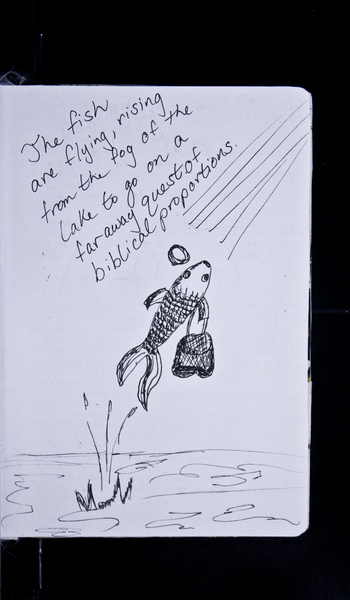 The fish
are flying, rising
from the fog of the
Lake to go on a
far away quest of
biblical proportions.